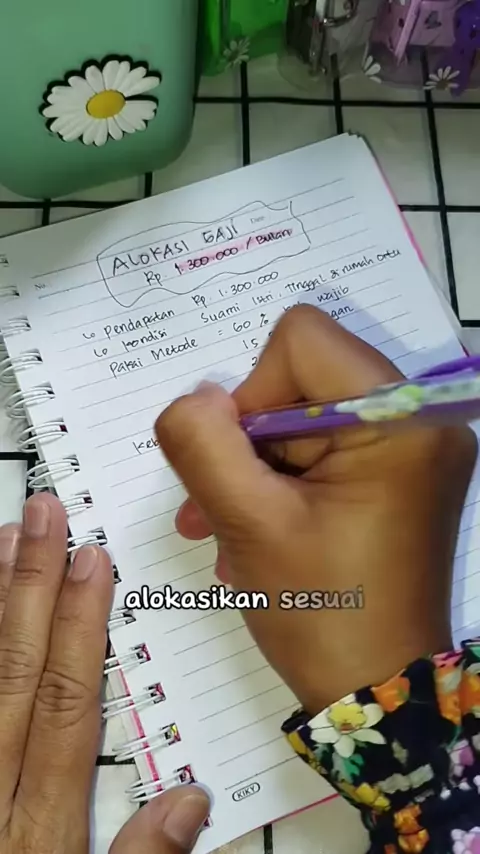 No.
Date
ALOKASI GAJI
Rp. 1.300.000 / Bulan
↳ Pendapatan Rp. 1.300.000
↳ Kondisi Suami Istri, Tinggal di rumah ortu
Pakai Metode = 60 % wajib
15
2
Keb
alokasikan sesuai
KIKY